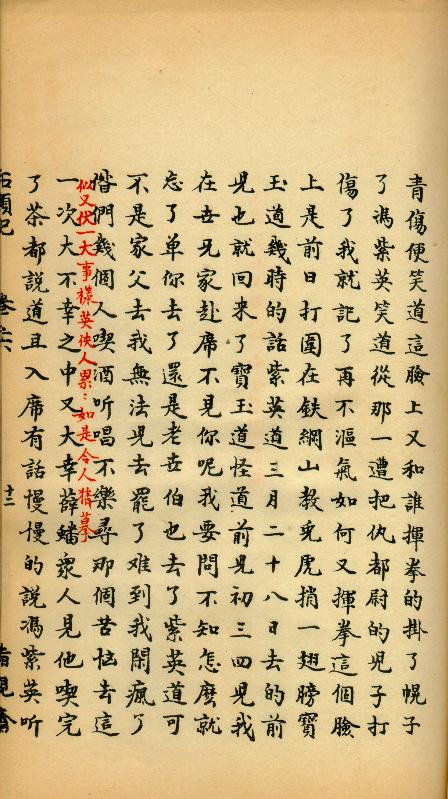 青傷便笑道這臉上又和誰揮拳的掛了幌子
了馮紫英笑道從那一遭把仇都尉的兒子打
傷了我就記了再不漚氣如何又揮拳這個臉
上是前日打圍在鉄網山教兎虎捎一翅膀寳
玉道幾時的話紫英道三月二十八日去的前
児也就回来了寳玉道怪道前児初三四児我
在世兄家赴席不見你呢我要問不知怎麽就
忘了单你去了還是老世伯也去了紫英道可
不是家父去我無法児去罷了难到我閑瘋了
偺們幾個人喫酒听唱不樂尋那個苦恼去這
一次大不幸之中又大幸薛蟠衆人見他喫完
似又伏一大事樣英侠人累〻如是令人猜摹
了茶都說道且入席有話慢慢的說馮紫英听
石頭記 卷六 十二 脂硯齋